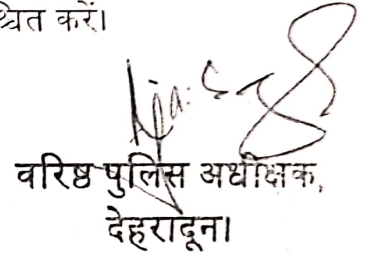 श्चित करें।
वरिष्ठ पुलिस अधीक्षक,
देहरादून।